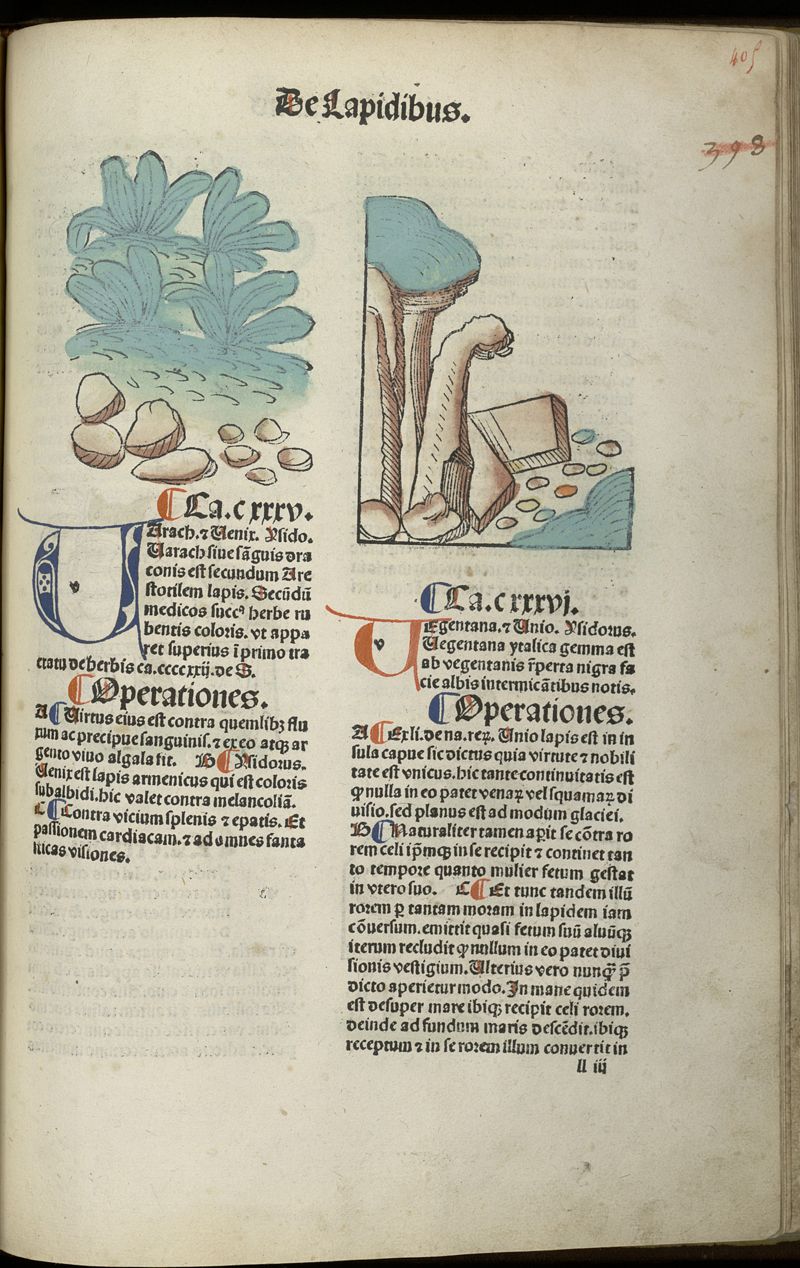 405
398
De Lapidibus.
Ca. cxxxv.
VArach. ⁊ Uenix. Ysido.
Uarach siue sāguis dra
conis est secundum Are
stotilem lapis. Secūdū
medicos succꝰ herbe ru
bentis coloris. vt appa
ret superius ī primo tra
ctatu de herbis ca. ccccxxij. de S.
Operationes.
A Uirtus eius est contra quemlibꝫ flu
xum ac precipue sanguinis. ⁊ ex eo atqꝫ ar
gento viuo algala fit. B Ysidorus.
Uenix est lapis armenicus qui est coloris
subalbidi. hic valet contra melancoliā.
C Contra vicium splenis ⁊ epatis. Et
passionem cardiacam. ⁊ ad omnes fanta
sticas visiones.
Ca. cxxxvj.
VEgentana. ⁊ Unio. Ysidorus.
Uegentana ytalica gemma est
ab vegentanis r̄perta nigra fa
cie albis intermicātibus notis.
Operationes.
A Ex li. de na. reꝝ. Unio lapis est in in
sula capue sic dictus quia virtute ⁊ nobili
tate est vnicus. hic tante continuitatis est
ꝙ nulla in eo patet venaꝝ vel squamaꝝ di
uisio. sed planus est ad modum glaciei.
B Naturaliter tamen aꝑit se cōtra ro
rem celi ip̄mqꝫ in se recipit ⁊ continet tan
to tempore quanto mulier fetum gestat
in vtero suo. C Et tunc tandem illū
rorem ꝑ tantam moram in lapidem iam
cōuersum. emittit quasi fetum suū aluūqꝫ
iterum recludit ꝙ nullum in eo patet diui
sionis vestigium. Ulterius vero nunqꝫ̄ p̄
dicto aperietur modo. In mane quidem
est desuper mare ibiqꝫ recipit celi rorem.
deinde ad fundum maris descēdit. ibiqꝫ
receptum ⁊ in se rorem illum conuertit in
ll iij